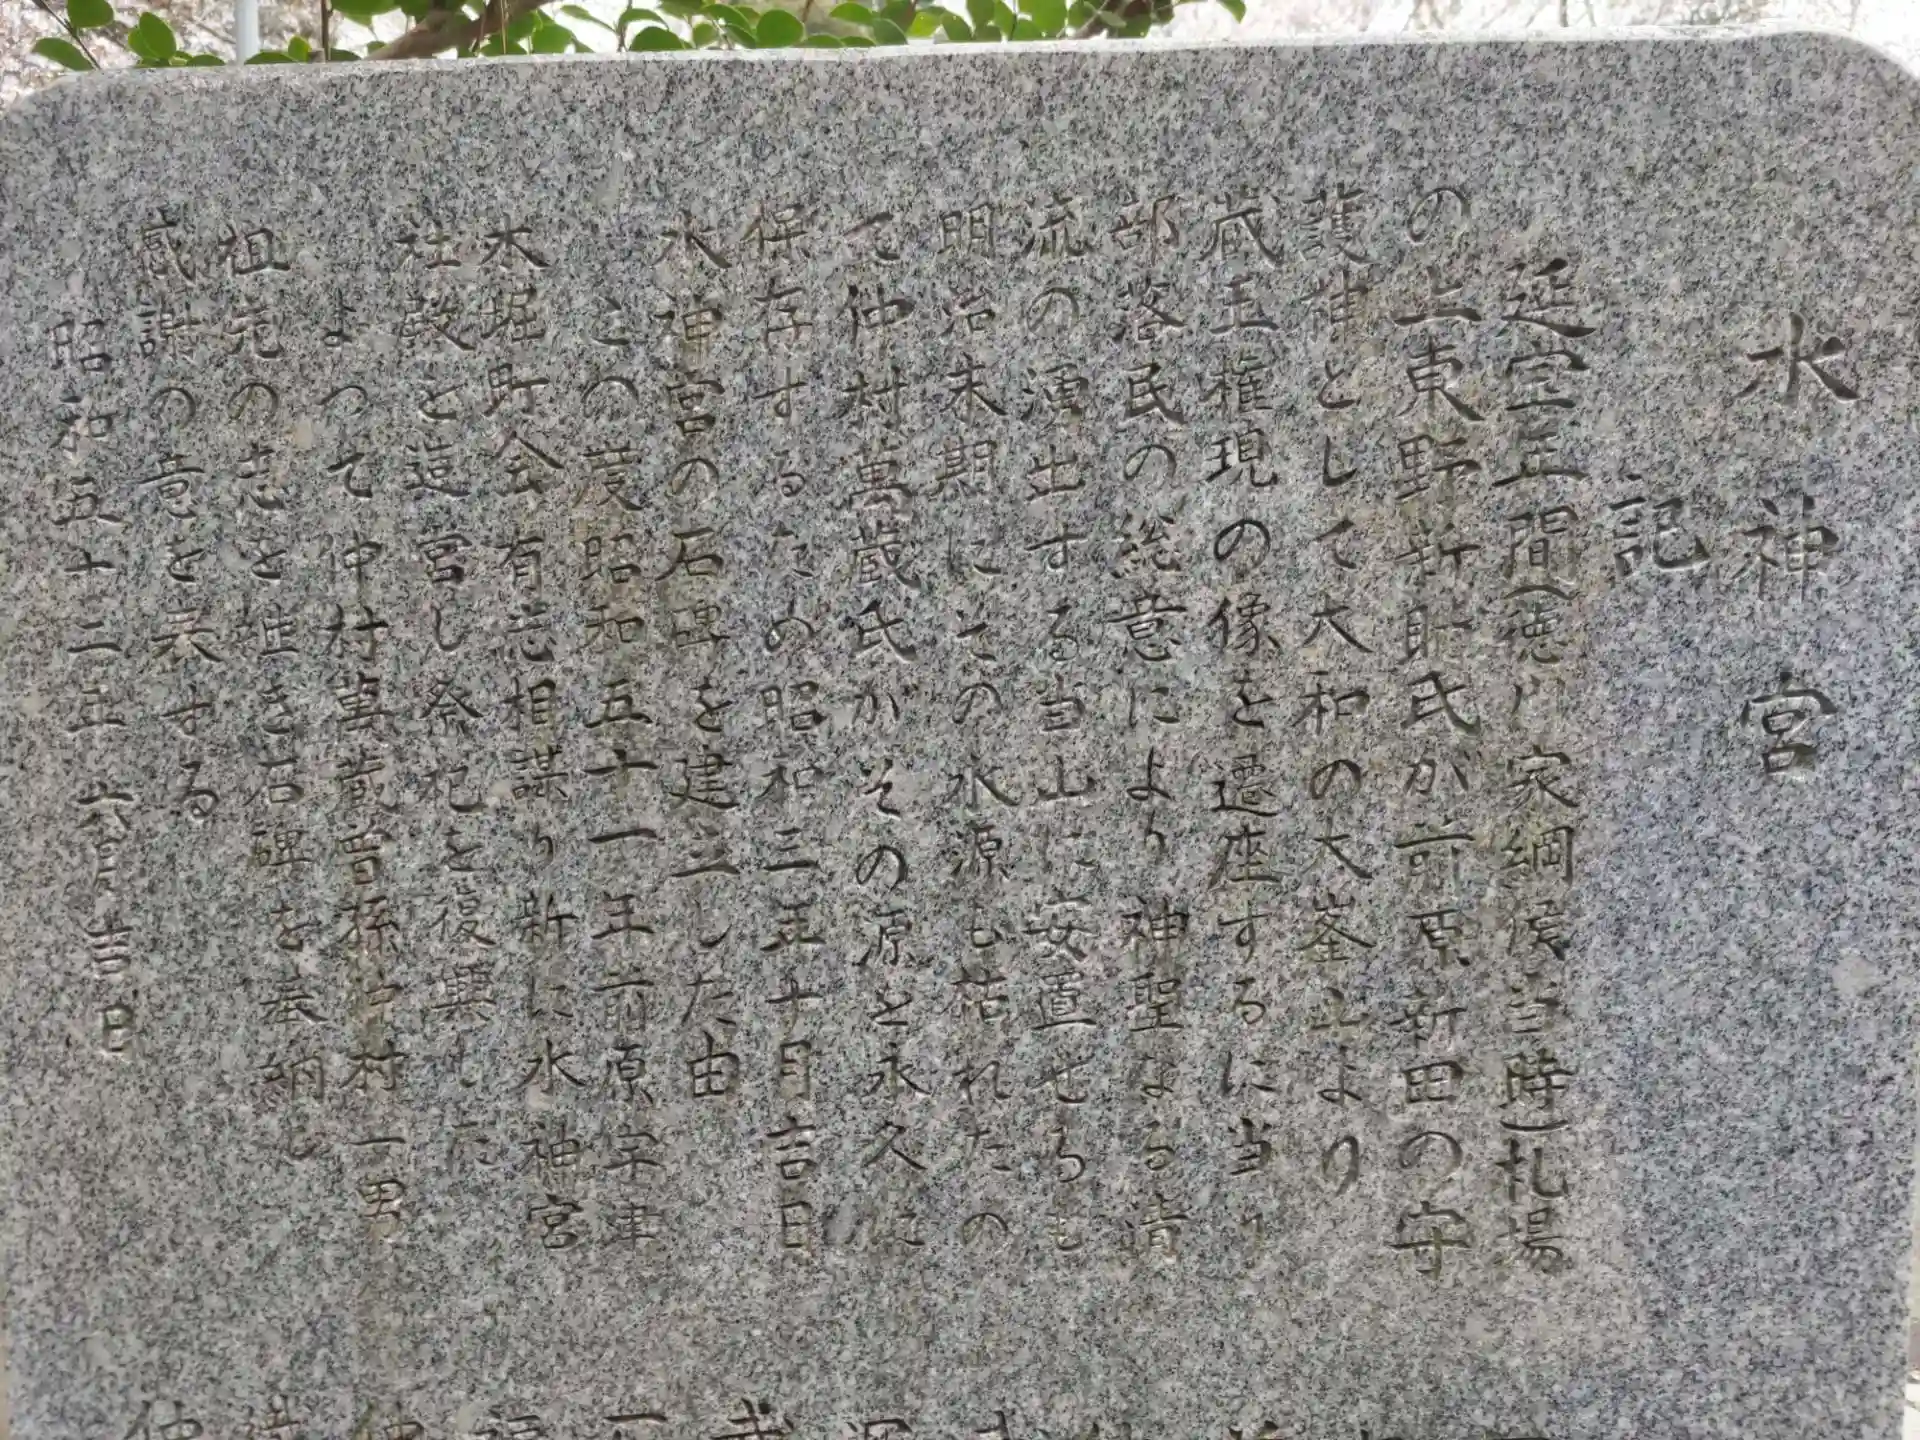 水神宮
記
延宝年間(徳川家綱候当時)札場
の上東野新助氏が前原新田の守
護神として大和の大峯山より
蔵王権現の像を遷座するに当り
部落民の総意により神聖なる清
流の湧出する当山に安置せるも
明治末期にその水源も枯れたの
で仲村萬蔵氏がその源を永久に
保存するため昭和三年十月吉日
水神宮の石碑を建立した由
この度昭和五十一年前原字津
木堀町会有志相謀り新に水神宮
社殿を造営し祭祀を復興せた
よって仲村萬蔵曽孫仲村一男
祖先の志を継き石碑を奉納し
感謝の意を表する
昭和五十二年六月吉日